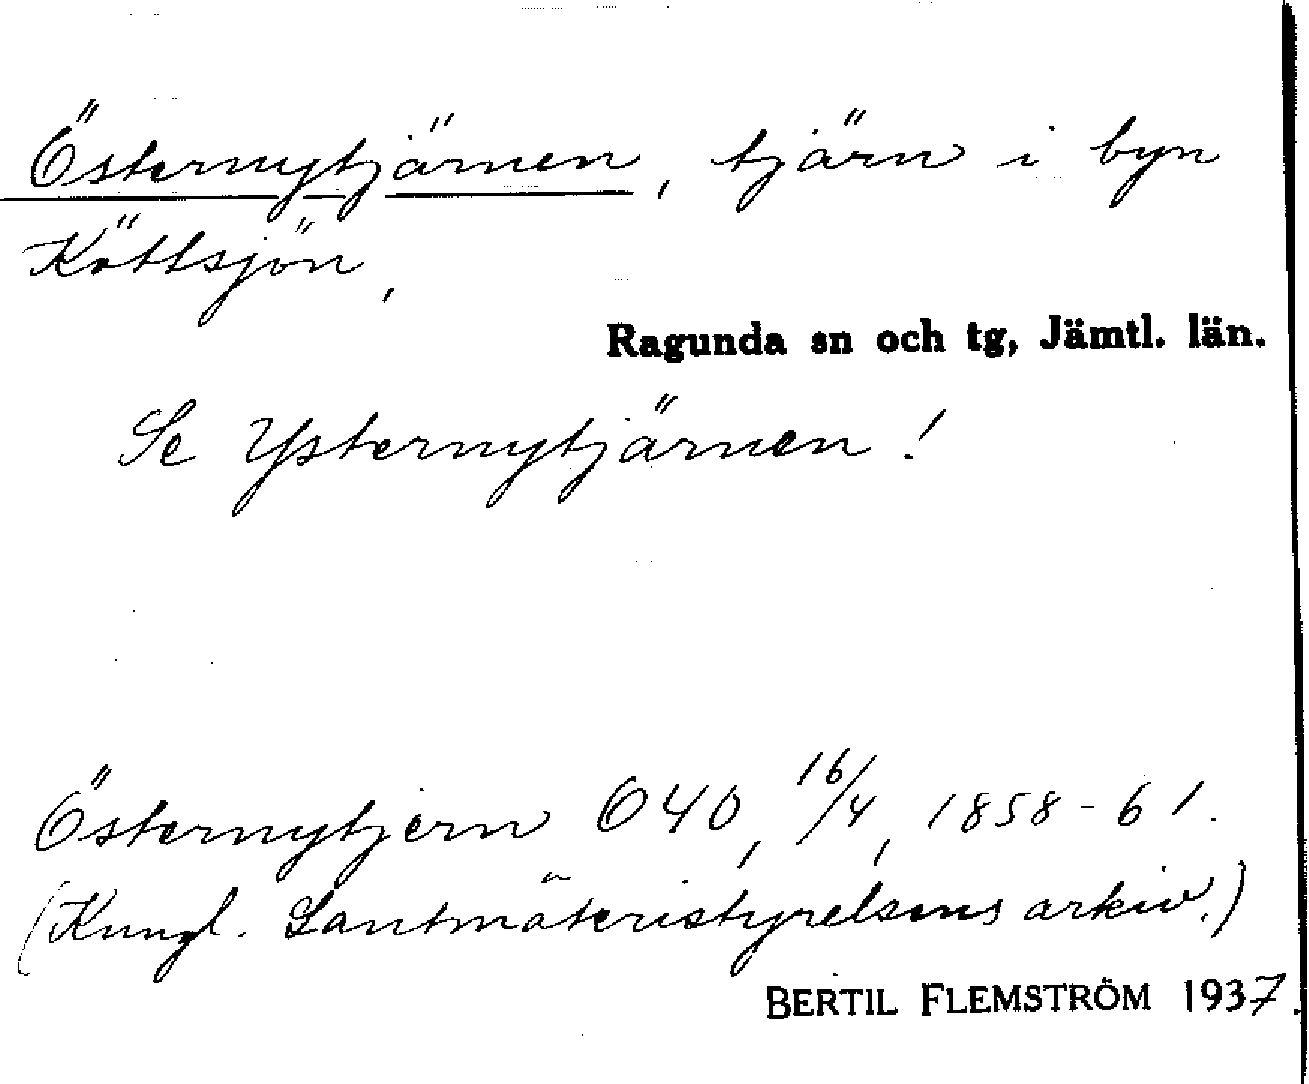 Östernytjärnen, tjärn i byn
Köttsjön,
Ragunda sn och tg, Jämtl. län.
Se Ysternytjärnen!
Östernytjern O40, 16/4, 1858-61.
(Kungl. Lantmäteristyrelsens arkiv.)
BERTIL FLEMSTRÖM 1937.